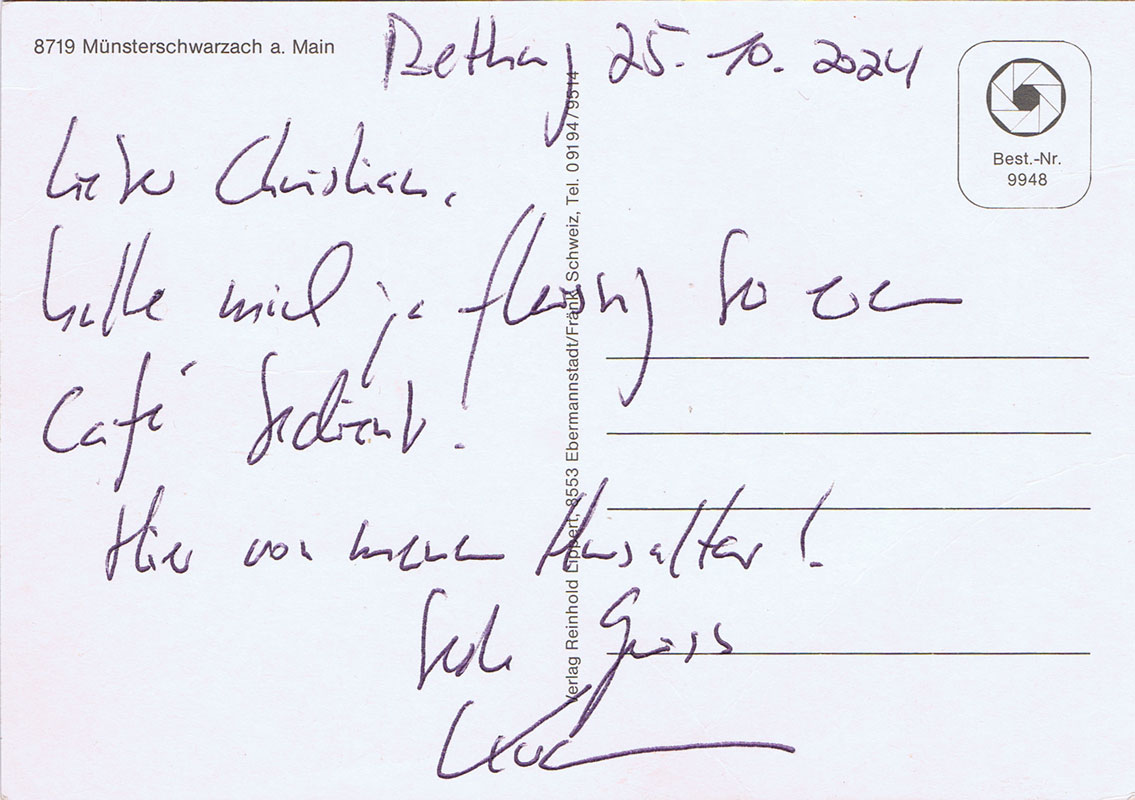 8719 Münsterschwarzach a. Main
Bethang 25. 10. 2024
Best.-Nr.
9948
Lieber Christian,
hatte mich ja fleissig
Café bedient!
Hier von meinem Hausaltar!
Gruss
Verlag Reinhold Lippert, 8553 Ebermannstadt/Fränk. Schweiz, Tel. 09194/9514